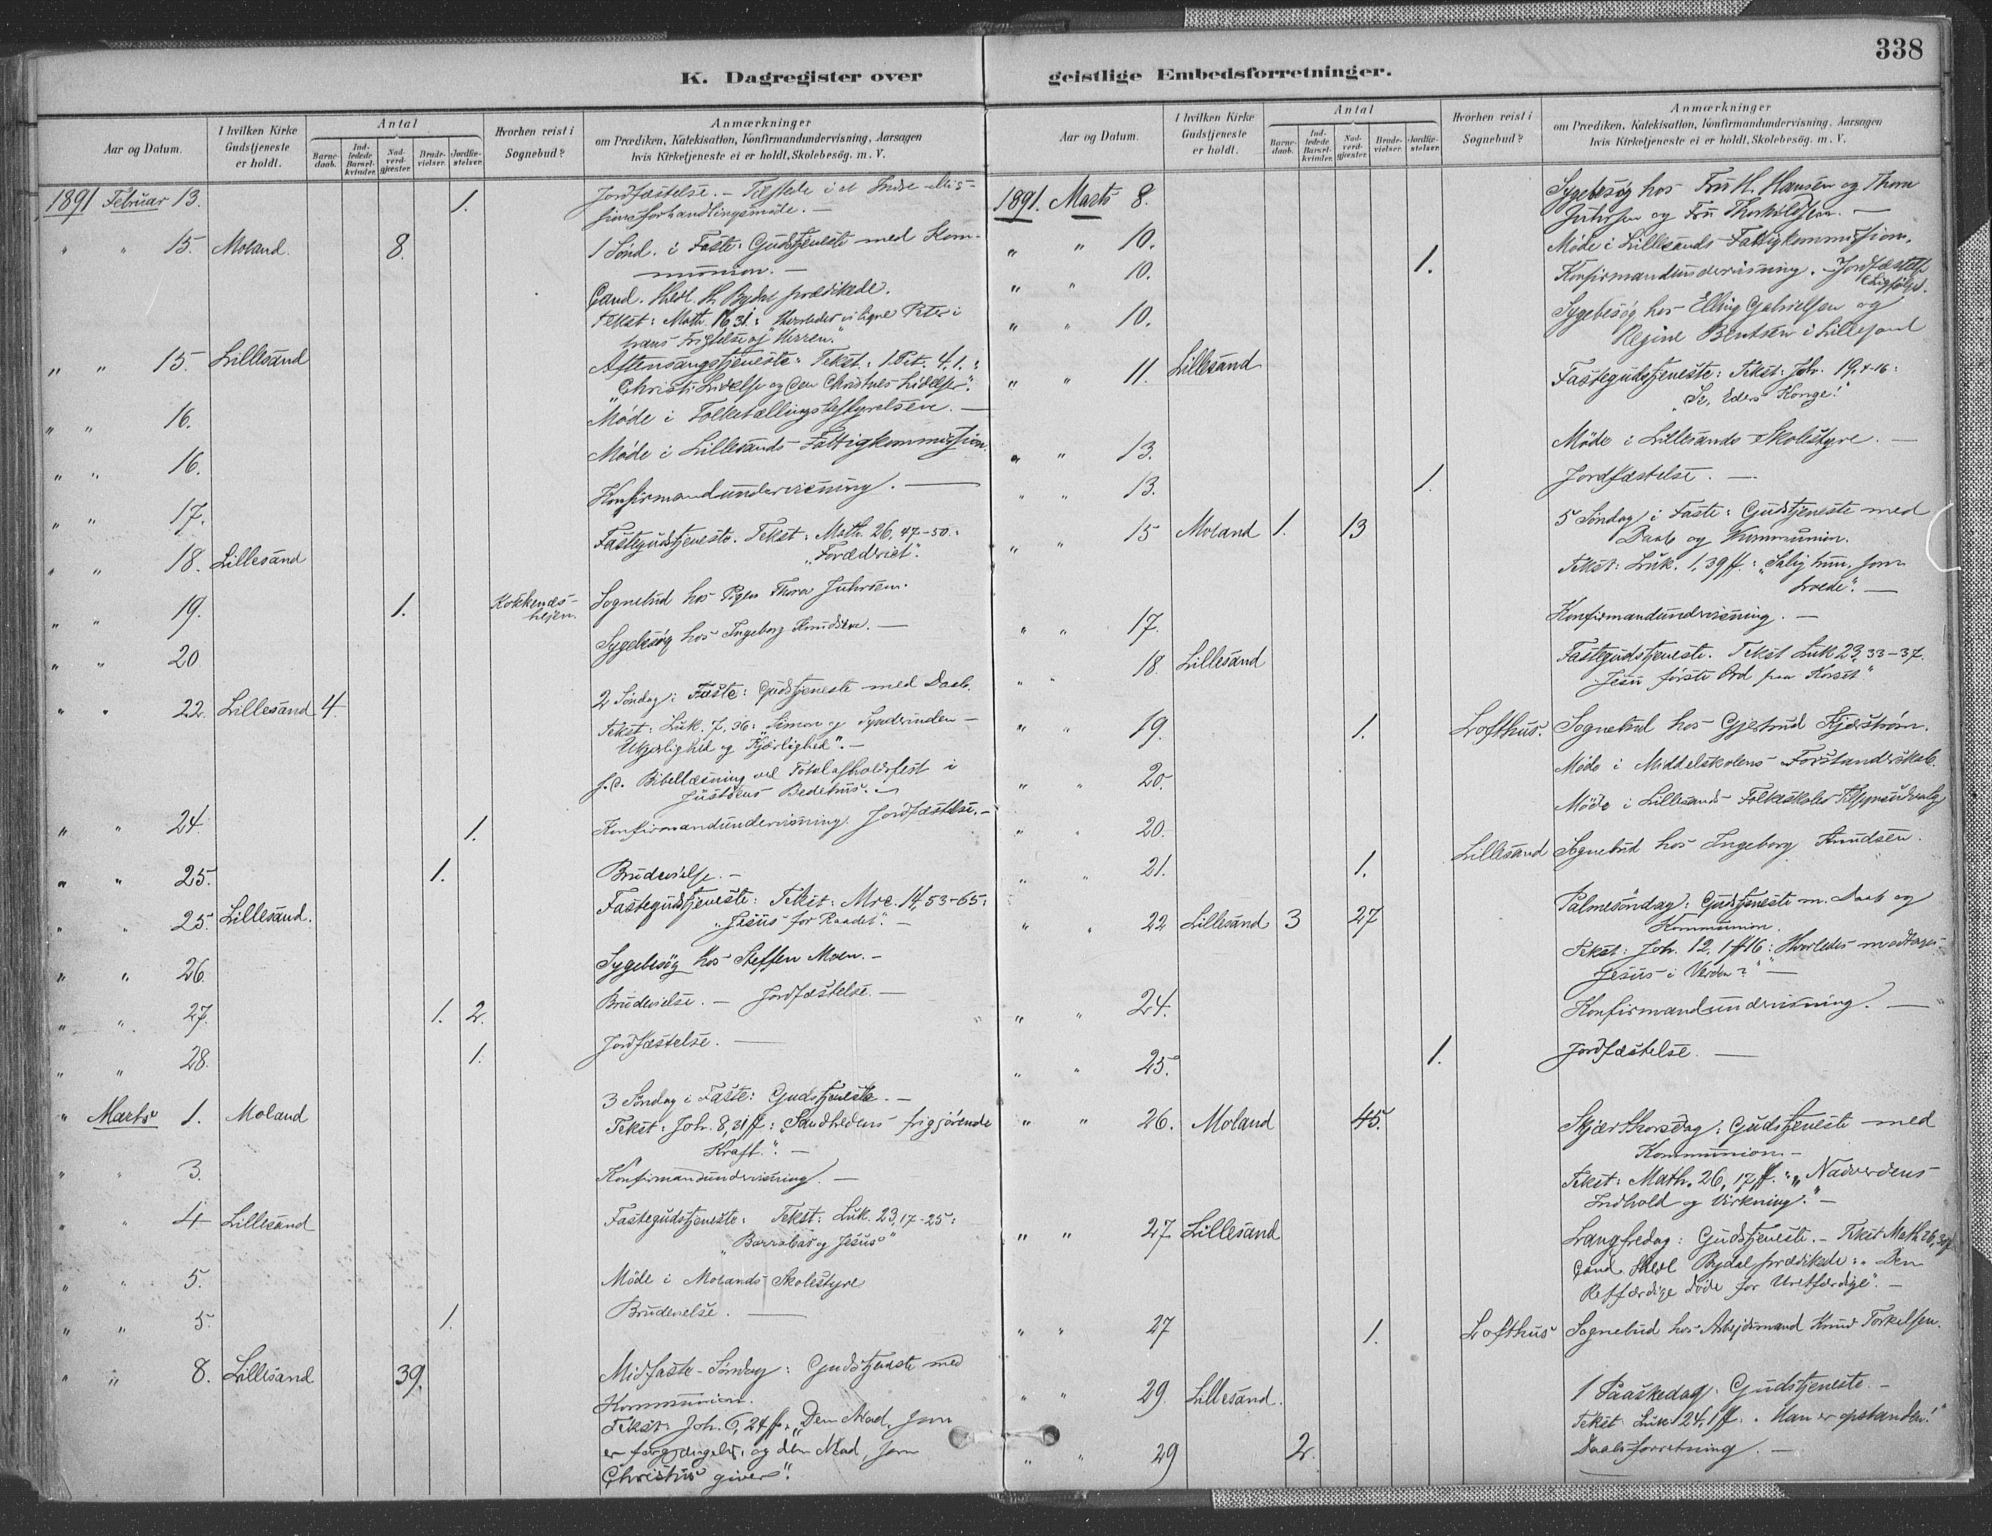 338
K. Dagregister over
geistlige Embedsforretninger.
Aar og Datum.
I hvilken Kirke
Gudstjeneste
er holdt.
Antal
Barne-
daab.
Ind-
ledede
Barsel-
kvinder.
Nad-
verd-
gjester.
Brude-
vielser.
Jordfæ-
stelser.
Hvorhen reist i
Sognebud?
Anmærkninger
om Prædiken, Katekisation, Konfirmandundervisning, Aarsagen
hvis Kirketjeneste ei er holdt, Skolebesøg. m. V.
1891 Februar 13. 1. Jordfæstelse. – Tilstede i et Indre Mis-
sionsforhandlingsmøde. –
" " 15. Moland. 8. 1 Sønd. i Faste: Gudstjeneste med Kom-
munion. –
Cand. theol. prædikede.
Tekst: Math. 16, 31.: Hvorledes vi ligne Peter i
hans Frygtelse af Herren."
" " 15. Lillesand Aftensangstjeneste: Tekst: 1 Pet. 4, 1.:
"Christi Lidelse og den Christnes Lidelse".
" " 16. Møde i Folketællingsbestyrelsen. –
" " 16. Møde i Lillesands Fattigkommission.
" " 17. Konfirmandundervisning. –
" " 18. Lillesand Fastegudstjeneste. Tekst: Math. 26, 47–50.:
"Forræderiet".
" " 19. 1. Kokkenæs-
heien. Sognebud hos Pigen Thora Juhrsen.
" " 20 Sygebesøg hos Ingeborg Knudsen. –
" " 22. Lillesand 4. 2 Søndag i Faste: Gudstjeneste med Daab.
Tekst: Luk. 7, 36: "Simon og Synderinden –
Ukjærlighed og Kjærlighed". –
s. D. Bibellæsning ved Totalafholdsfest i
Justøens Bedehus. –
" " 24. 1. Konfirmandundervisning. Jordfæstelse. –
" " 25. 1. Brudevielse. –
" " 25. Lillesand. Fastegudstjeneste: Tekst: Mrc. 14, 53–65:
"Jesus for Raadet". –
" " 26. Sygebesøg hos Steffen Moen. –
" " 27. 1. 2. Brudevielse. – Jordfæstelse. –
" " 28. 1. Jordfæstelse. –
" Marts 1. Moland 3 Søndag i Faste: Gudstjeneste. –
Tekst: Joh. 8, 31 ff: "Sandhedens frigjørende
Kraft." –
" " 3. Konfirmandundervisning. –
" " 4 Lillesand Fastegudstjeneste: Tekst: Luk. 23, 17–25:
"Barrabas og Jesus"
" " 5. Møde i Molands Skolestyre
" " 5. 1. Brudevielse. –
" " 8. Lillesand 39. Midfaste-Søndag: Gudstjeneste med
Kommunion.
Tekst: Joh. 6, 24 ff. "Den Mad, som
er forgjængelig, og den Mad, som
Christus giver".
Aar og Datum.
I hvilken Kirke
Gudstjeneste
er holdt.
Antal
Barne-
daab.
Ind-
ledede
Barsel-
kvinder.
Nad-
verd-
gjester.
Brude-
vielser.
Jordfæ-
stelser.
Hvorhen reist i
Sognebud?
Anmærkninger
om Prædiken, Katekisation, Konfirmandundervisning, Aarsagen
hvis Kirketjeneste ei er holdt, Skolebesøg. m. V.
1891. Marts 8. Sygebesøg hos Fru H. Hansen og Thora
Juhrsen og Fru Thorkildsen. –
" " 10. Møde i Lillesands Fattigkommission.
" " 10. 1. Konfirmandundervisning. Jordfæstelse
" " 10. Sygebesøg hos Elling Gabrielsen og
Regine Bentsen i Lillesand
" " 11. Lillesand Fastegudstjeneste: Tekst: Joh. 19, 4–16:
"Se, Eders Konge!"
" " 13. Møde i Lillesands Skolestyre. –
" " 13. 1. Jordfæstelse. –
" " 15 Moland 1. 13 5 Søndag i Faste: Gudstjeneste med
Daab og Kommunion.
Tekst: Luk. 1, 39 ff.: "Salig hun, som
troede". –
" " 17. Konfirmandundervisning. –
" " 18. Lillesand Fastegudstjeneste. Tekst Luk 23, 33–37.
"Jesu første Ord paa Korset"
" " 19. 1. Lofthus. Sognebud hos Gjertrud Kjerstrøm.
" " 20. Møde i Middelskolens Forstanderskab.
" " 20. Møde i Lillesands Folkeskoles Tilsynsudvalg
" " 21. 1. Lillesand Sognebud hos Ingeborg Knudsen.
" " 22 Lillesand 3 27 Palmesøndag: Gudstjeneste m. Daab og
Kommunion.
Tekst: Joh. 12, 1 ff 16: "Hvorledes modtages
Jesus i Verden?" –
" " 24. Konfirmandundervisning. –
" " 25. 1. Jordfæstelse. –
" " 26. Moland 45. Skjærthorsdag: Gudstjeneste med
Kommunion –
Tekst: Math. 26, 17 ff.: "Nadverdens
Indhold og Virkning." –
" " 27 Lillesand Langfredag: Gudstjeneste. – Tekst Math 26,
Cand. theol. prædikede: "Den
Retfærdige døde for Uretfærdige". –
" " 27 1. Lofthus Sognebud hos Arbejdsmand Knud Torkelsen.
" " 29. Lillesand. 1 Paaskedag: Gudstjeneste. –
Tekst Luk 24, 1 ff. "Han er opstanden!"
" " 29 2. Daabsforretning. –